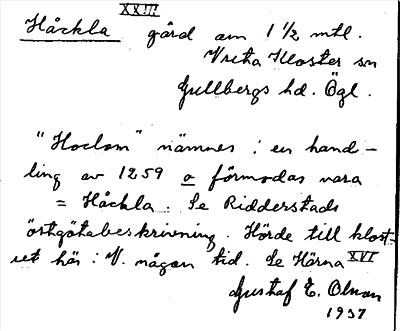 XXIII
Håckla gård am 1 1/2 mtl.
Vreta Kloster sn
Gullbergs hd. Ögl.
"Hoclom" nämnes i en hand-
ling av 1259 o förmodas vara
= Håckla. Se Ridderstads
östgötabeskrivning. Hörde till klost-
ret här i V. någon tid. Se Härna XVI
Gustaf E. Olsson
1937